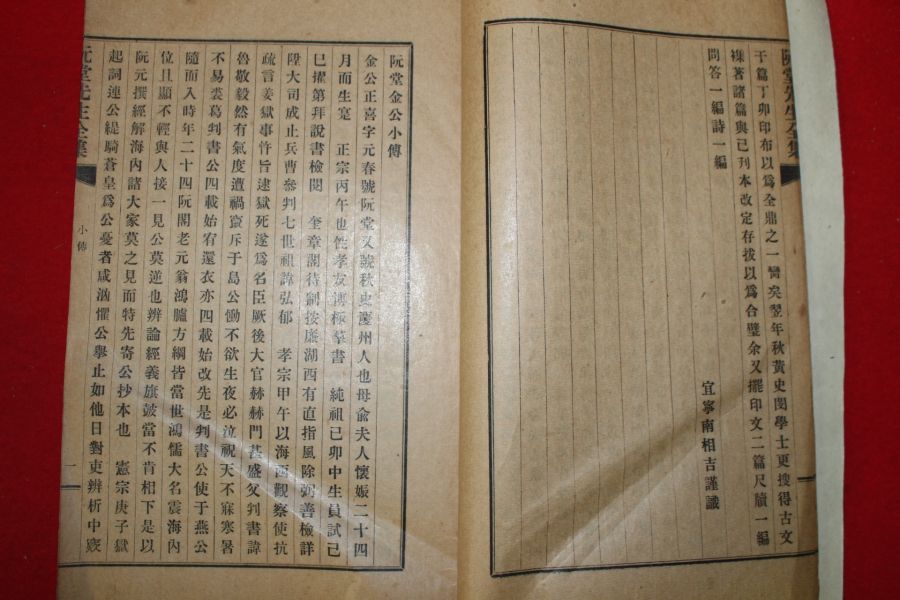 阮堂先生全集
干篇丁卯印布以爲全鼎之一臠矣翌年秋黃史閔學士更搜得古文
襍著諸篇與已刊本改定存拔以爲合璧余又擺印文二篇尺牘一編
問答一編詩一編
宜寧南相吉謹識
阮堂金公小傳
金公正喜字元春號阮堂又號秋史慶州人也母兪夫人懷娠二十四
月而生寔 正宗丙午也性孝友博極羣書 純祖己卯中生員試己
巳擢第拜說書檢閱 奎章閣待制按廉湖西有直指風除弼善檢詳
陞大司成止兵曹參判七世祖諱弘郁 孝宗甲午以海西觀察使抗
疏言姜獄事忤旨逮獄死遂爲名臣厥後大官赫赫門甚盛父判書諱
魯敬毅然有氣度遭禍竄斥于島公慟不欲生夜必泣祝天不寐寒暑
不易裘葛判書公四載始宥還衣亦四載始改先是判書公使于燕公
隨而入時年二十四阮閣老元翁鴻臚方綱皆當世鴻儒大名震海內
位且顯不輕與人接一見公莫逆也辨論經義旗鼓當不肯相下是以
阮元撰經解海內諸大家莫之見而特先寄公抄本也 憲宗庚子獄
起詞連公緹騎蒼皇爲公憂者咸洶懼公擧止如他日對吏辨析中窾
阮堂先生全集
小傳
一